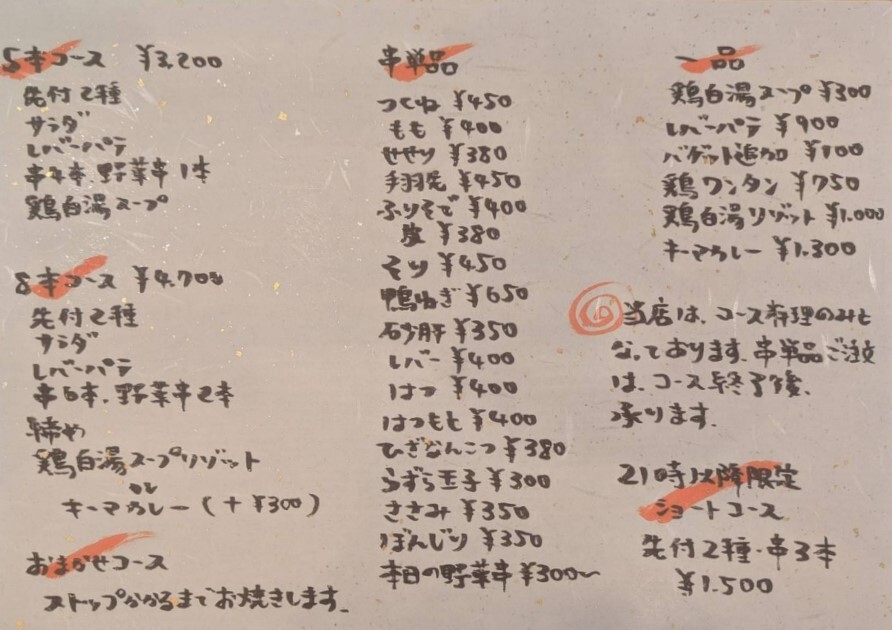 5本コース ¥3,200
先付2種
サラダ
レバーパテ
串4本、野菜串1本
鶏白湯スープ
8本コース ¥4,700
先付2種
サラダ
レバーパテ
串6本、野菜串2本
締め
鶏白湯スープリゾット
or
キーマカレー(+¥300)
おまかせコース
ストップかかるまでお焼きします。
串単品
つくね ¥450
もも ¥400
せせり ¥380
手羽先 ¥450
ふりそで ¥400
¥380
そり ¥450
鴨ねぎ ¥650
砂肝 ¥350
レバー ¥400
はつ ¥400
はつもと ¥400
ひざなんこつ ¥380
うずら玉子 ¥300
ささみ ¥350
ぼんじり ¥350
本日の野菜串 ¥300〜
一品
鶏白湯スープ ¥300
レバーパテ ¥900
バゲット追加 ¥100
鶏ワンタン ¥750
鶏白湯リゾット ¥1,000
キーマカレー ¥1,300
当店は、コース料理のみと
なっております。串単品ご注文
は、コース終了後、
承ります。
21時以降限定
ショートコース
先付2種・串3本
¥1,500